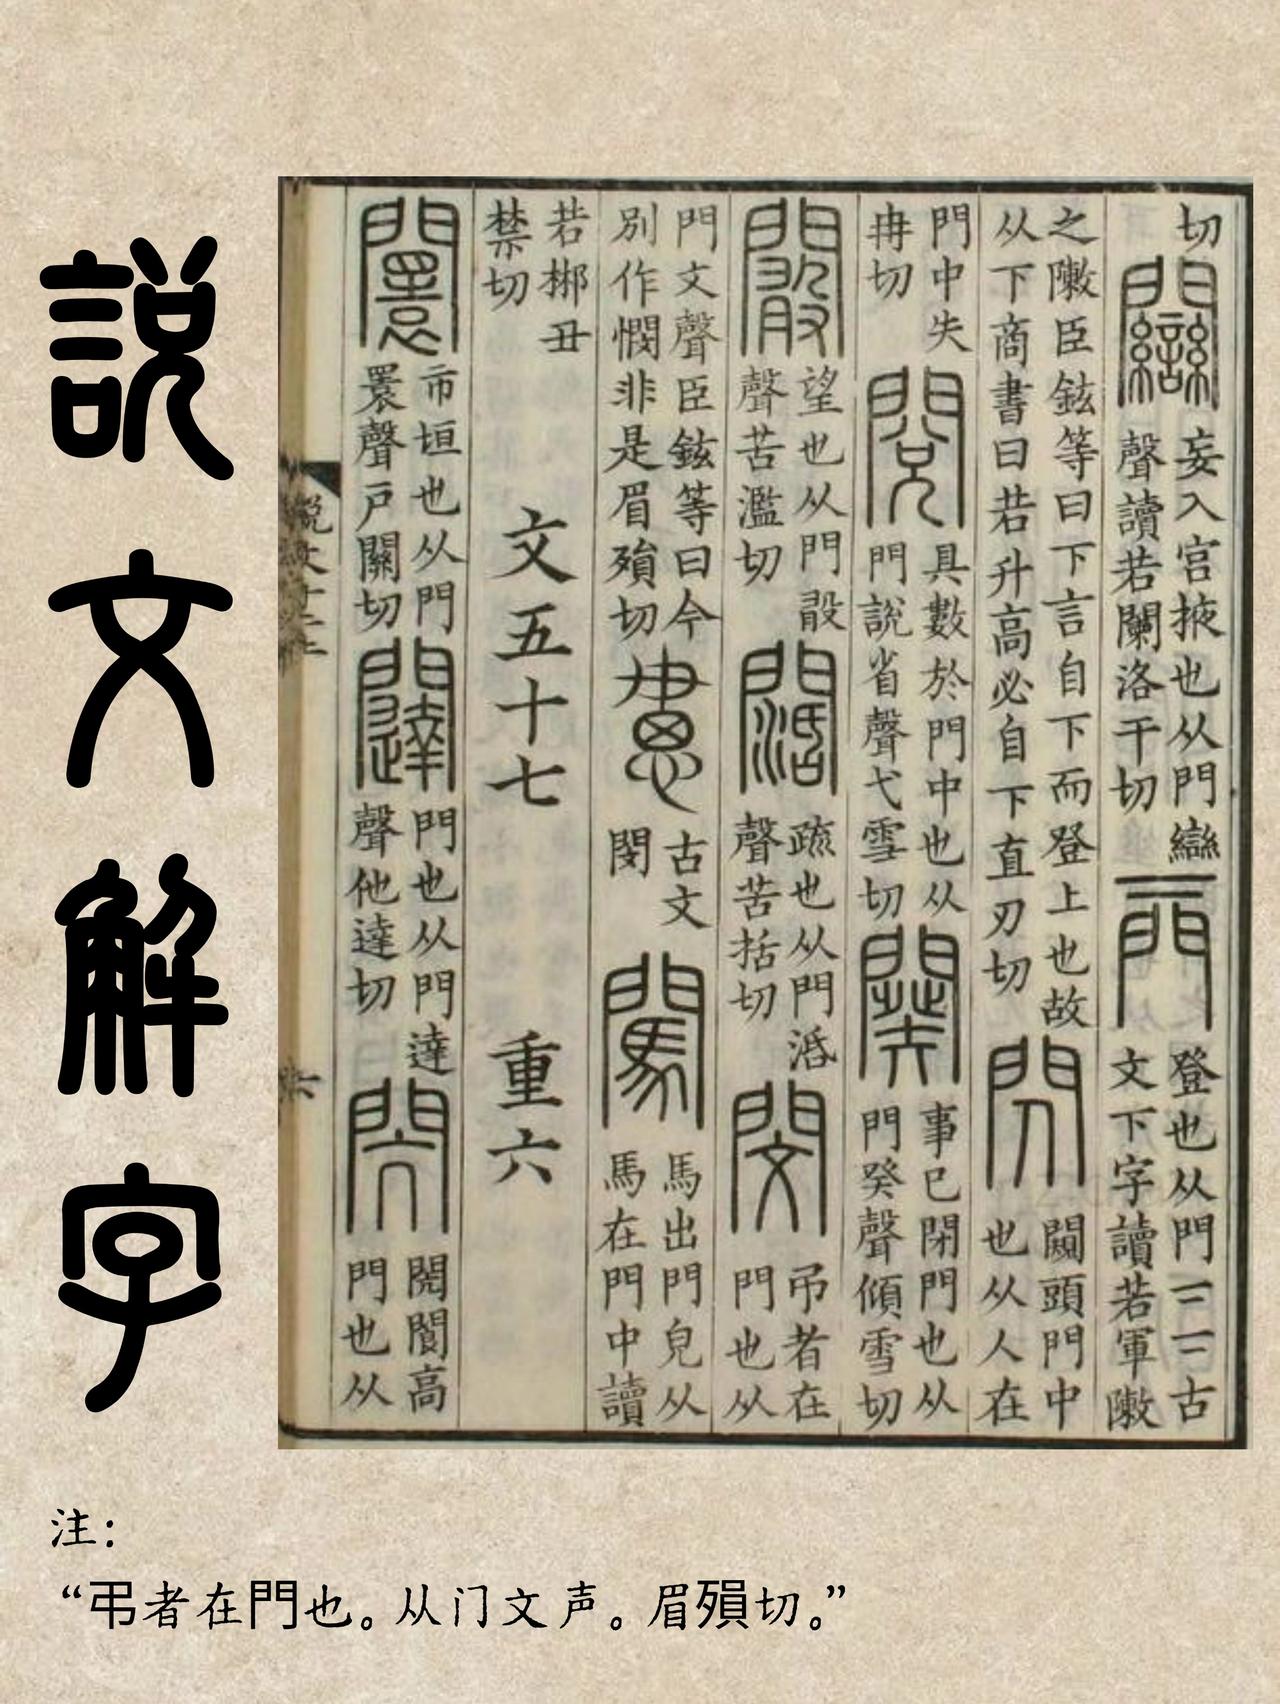 說文解字
切 𨷻 妄入宮掖也从門䜌聲讀若闌洛干切 𨳲 登也从門二二古文下字讀若軍敶
之敶臣鉉等曰下言自下而登上也故从下商書曰若升高必自下直刃切 閃 闚頭門中也从人在
門中失冉切 閱 具數於門中也从門說省聲弋雪切 闋 事已閉門也从門癸聲傾雪切
闞 望也从門𢽤聲苦濫切 闊 疏也从門𣴠聲苦括切 閔 吊者在門也从
門文聲臣鉉等曰今別作憫非是眉殞切 古文閔 闖 馬出門皃从馬在門中讀
若郴丑禁切 文五十七 重六
闤 市垣也从門睘聲戶關切 闥 門也从門達聲他達切 閌 閌閬高門也从
說文十二上 六
注：
“弔者在門也。从门文声。眉殞切。”